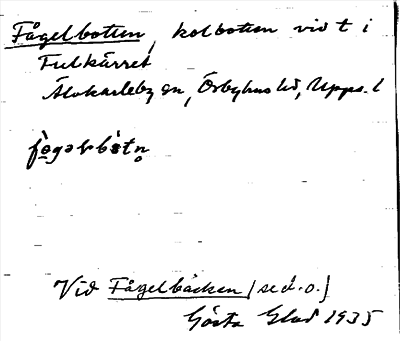 Fågelbotten, kolbotten vid t i
Fulkärret
Älvkarleby sn, Örbyhus hd, Upps. l
Vid Fågelbäcken (se d. o.)
Gösta Glad 1935